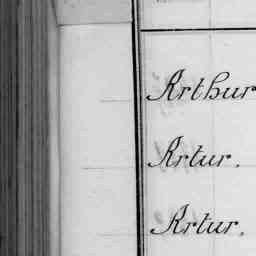 Arthur
Artur.
Artur.